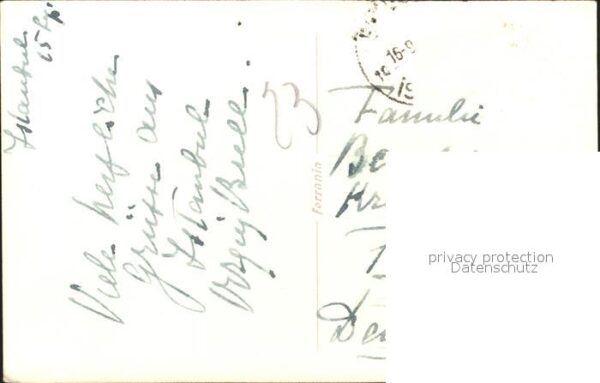 Istanbul
15
Viele herzliche
Grüsse aus
Istanbul
23
Ferrania
16-9
Familie
Be
Kr
De
privacy protection
Datenschutz